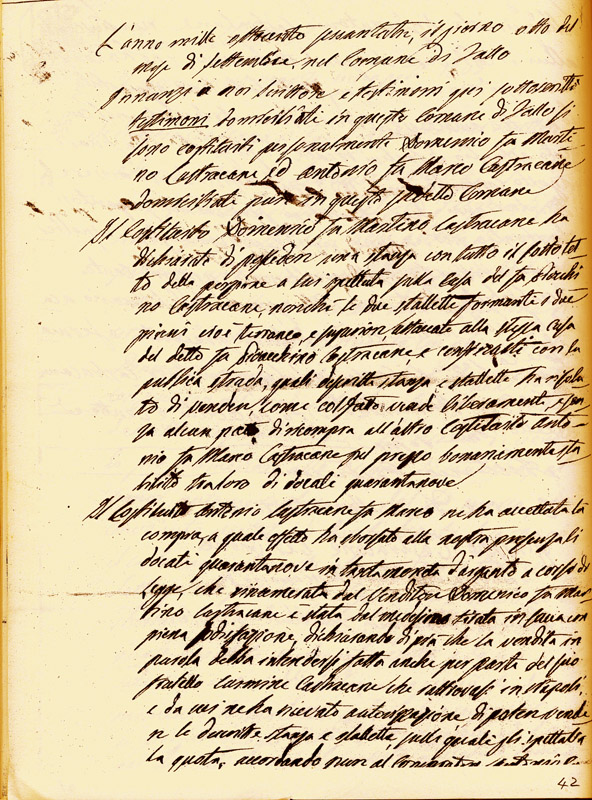 L'anno mille ottocento quarantatre, il giorno otto del
mese di Settembre nel Comune di Fallo
Innanzi a noi Scrittore e testimoni qui sottoscritti
testimoni domiciliati in questo Comune di Fallo si
sono costituiti personalmente Domenico fu Marti
no Castracane ed Antonio fu Marco Castracane
domiciliati pure in questo sudetto Comune
Il Costituito Domenico fu Martino Castracane ha
dichiarato di possedere una stanza con tutto il sottotet
to della porzione a lui spettata sulla Casa del fu Gioacchi
no Castracane, nonchè le due stallette formante i due
piani cioè terraneo, e superiori attaccate alla stessa casa
del detto fu Gioacchino Castracane e confinanti con la
publica strada, quali descritte stanza e stallette ha risolu
to di vendere, come col fatto vende liberamente, e sen
za alcun patto di ricompra all'altro Costituito Anto-
nio fu Marco Castracane pel prezzo bonariamente sta
bilito tra loro di docati quarantanove
Il Costituito Antonio Castracane fu Marco ne ha accettata la
compra, a quale effetto ha sborsato alla nostra presenza li
docati quarantanove in tanta moneta d'argento a corso di
legge, che numerata dal venditore Domenico fu Mar
tino Castracane è stata dal medesimo tirata in sacca con
piena sodisfazione, dichiarando di più che la vendita in
parola debba intendersi fatta anche per parte del suo
fratello Carmine Castracane che ritrovasi in Napoli,
e da cui ne ha ricevuto autorizzazione di poter vende
re le descritte stanza e stallette, sulle quali gli spettava
la quota, accordando pure al Compratore
42